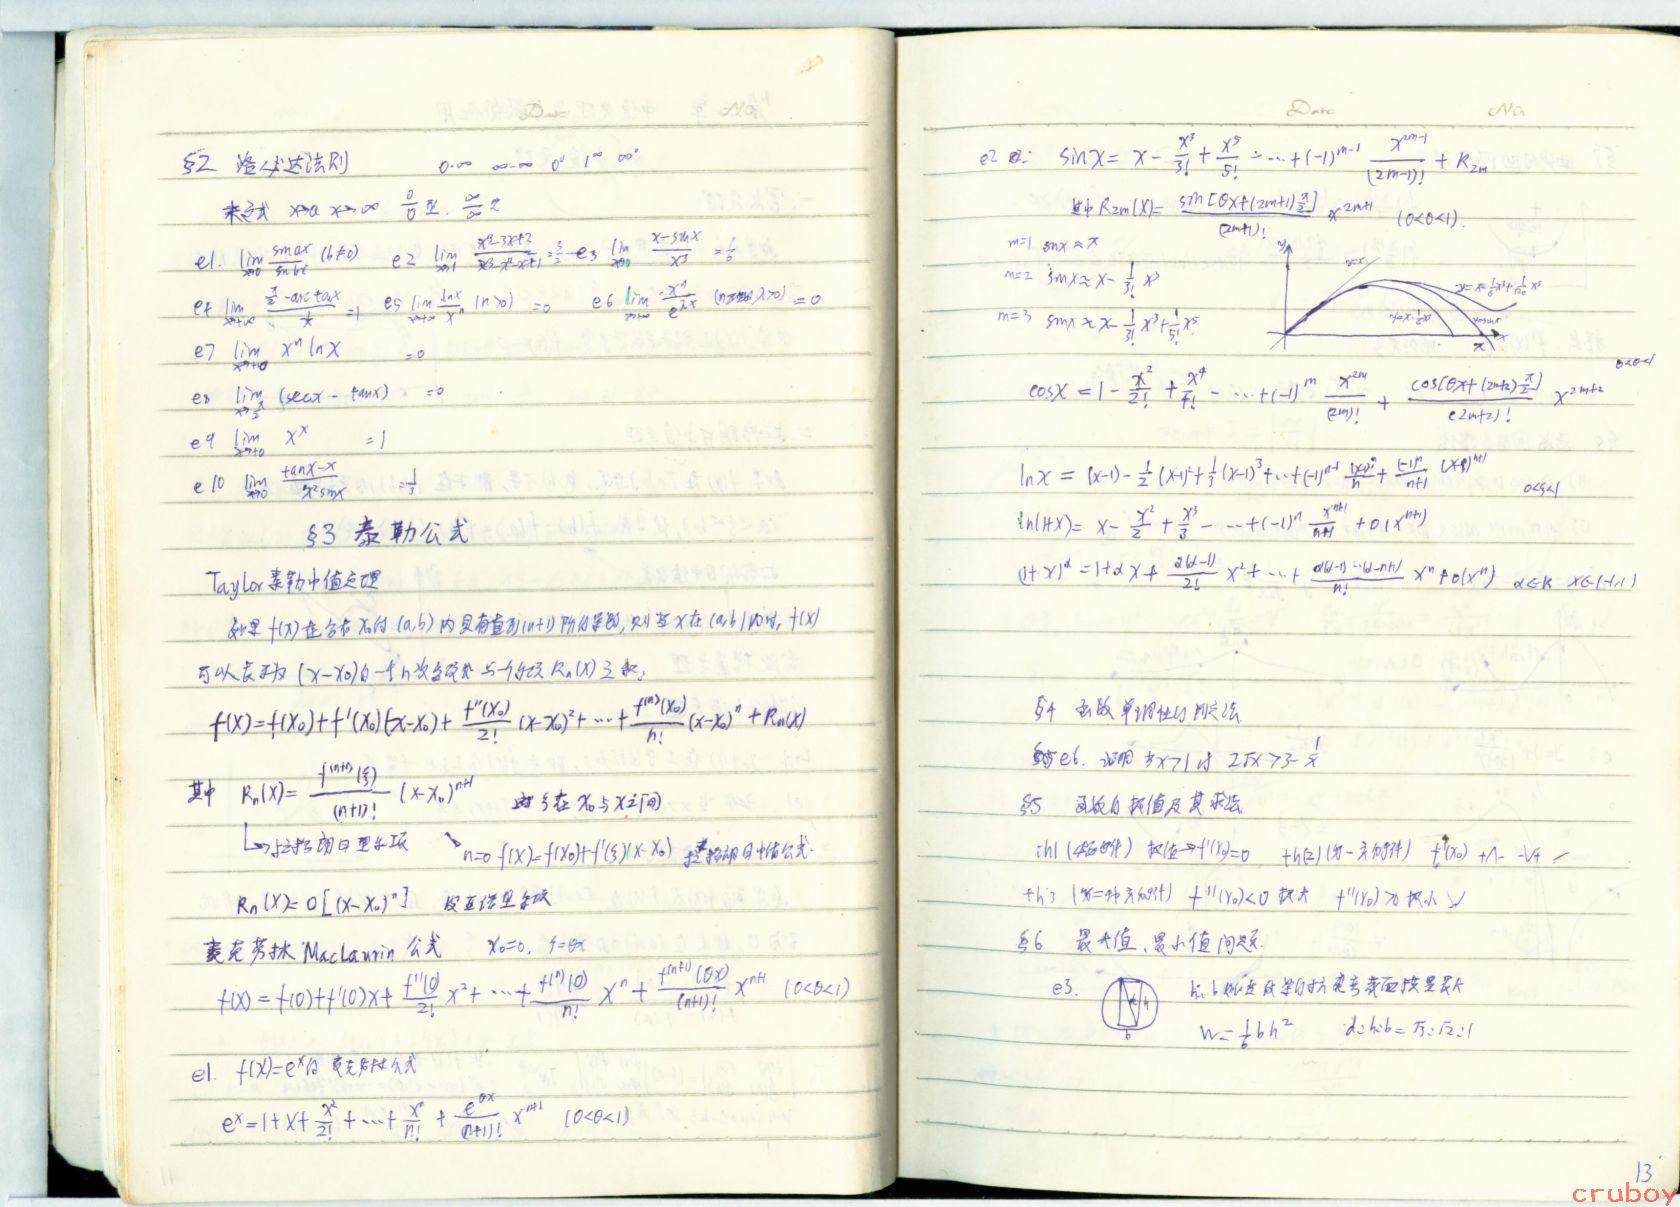 Date No.
§2 洛必达法则 0·∞ ∞-∞ 0⁰ 1^∞ ∞⁰
未定式 x→a x→∞ 0/0 型. ∞/∞ 型
e1. lim x→0 sinax/sinbx (b≠0) e2 lim x→1 (x³-3x+2)/(x³-x²-x+1) = 3/2 e3 lim x→0 (x-sinx)/x³ = 1/6
e4 lim x→+∞ (π/2-arctanx)/(1/x) = 1 e5 lim x→+∞ lnx/xⁿ (n>0) =0 e6 lim x→+∞ xⁿ/e^{λx} λ>0) =0
e7 lim x→+0 xⁿ lnx =0
e8 lim x→π/2 (secx - tanx) =0
e9 lim x→+0 x^x =1
e10 lim x→0 (tanx-x)/(x²sinx) = 1/3
§3 泰勒公式
Taylor 泰勒中值定理
如果 f(x) 在含有 x₀的 (a,b) 内具有直到(n+1) 阶的导数, 则当 x 在 (a,b) 内时, f(x)
可以表示为 (x-x₀)的一个n次多项式与一个余项 Rn(x) 之和:
f(x)=f(x₀)+f'(x₀)(x-x₀)+ f''(x₀)/2! (x-x₀)²+…+ f⁽ⁿ⁾(x₀)/n! (x-x₀)ⁿ +Rn(x)
其中 Rn(x)= f⁽ⁿ⁺¹⁾(ξ)/(n+1)! (x-x₀)ⁿ⁺¹ ξ在 x₀ 与 x 之间
↳拉格朗日型余项 n=0 f(x)=f(x₀)+f'(ξ)(x-x₀) 拉格朗日中值公式.
Rn(x)=0[(x-x₀)ⁿ] 皮亚诺型余项
麦克劳林 Maclaurin 公式 x₀=0, ξ=θx
f(x)=f(0)+f'(0)x+ f''(0)/2! x²+…+ f⁽ⁿ⁾(0)/n! xⁿ + f⁽ⁿ⁺¹⁾(θx)/(n+1)! xⁿ⁺¹ (0<θ<1)
e1. f(x)=e^x的 麦克劳林公式
e^x=1+x+ x²/2! +…+ xⁿ/n! + e^{θx}/(n+1)! xⁿ⁺¹ (0<θ<1)
Date No
e2 sinx= x - x³/3! + x⁵/5! -…+(-1)^{m-1} x^{2m-1}/(2m-1)! + R2m
其中 R2m(x)= sin[θx+(2m+1)π/2]/(2m+1)! x^{2m+1} (0<θ<1).
m=1 sinx≈x
m=2 sinx≈x- 1/3! x³
m=3 sinx≈x- 1/3! x³+ 1/5! x⁵
y y=x y=x-1/6x³+1/120x⁵ y=sinx π x
0<θ<1
cosx=1- x²/2! + x⁴/4! -…+(-1)^m x^{2m}/(2m)! + cos[θx+(2m+2)π/2]/(2m+2)! x^{2m+2}
lnx = (x-1)- 1/2 (x-1)²+ 1/3 (x-1)³+…+(-1)^{n-1} (x-1)ⁿ/n + (-1)ⁿ/n+1
ln(1+x)= x- x²/2 + x³/3 -…+(-1)ⁿ xⁿ⁺¹/n+1 +0(xⁿ⁺¹)
(1+x)^α=1+αx+ α(α-1)/2! x²+…+ α(α-1)…(α-n+1)/n! xⁿ+0(xⁿ) α∈R x∈(-1,1)
§4 函数单调性的判定法
e6. 证明 当x>1 时 2√x>3- 1/x
§5 函数的极值及其求法
th1 (必要条件) 极值→f'(x₀)=0 th(2) (第一充分条件) f'(x₀)
th3 (第二种充分条件) f''(x₀)<0 极大 f''(x₀)>0 极小
§6 最大值、最小值问题.
e3. d h b
W= 1/6 bh² d:h:b=√3:√2:1
13
cruboy